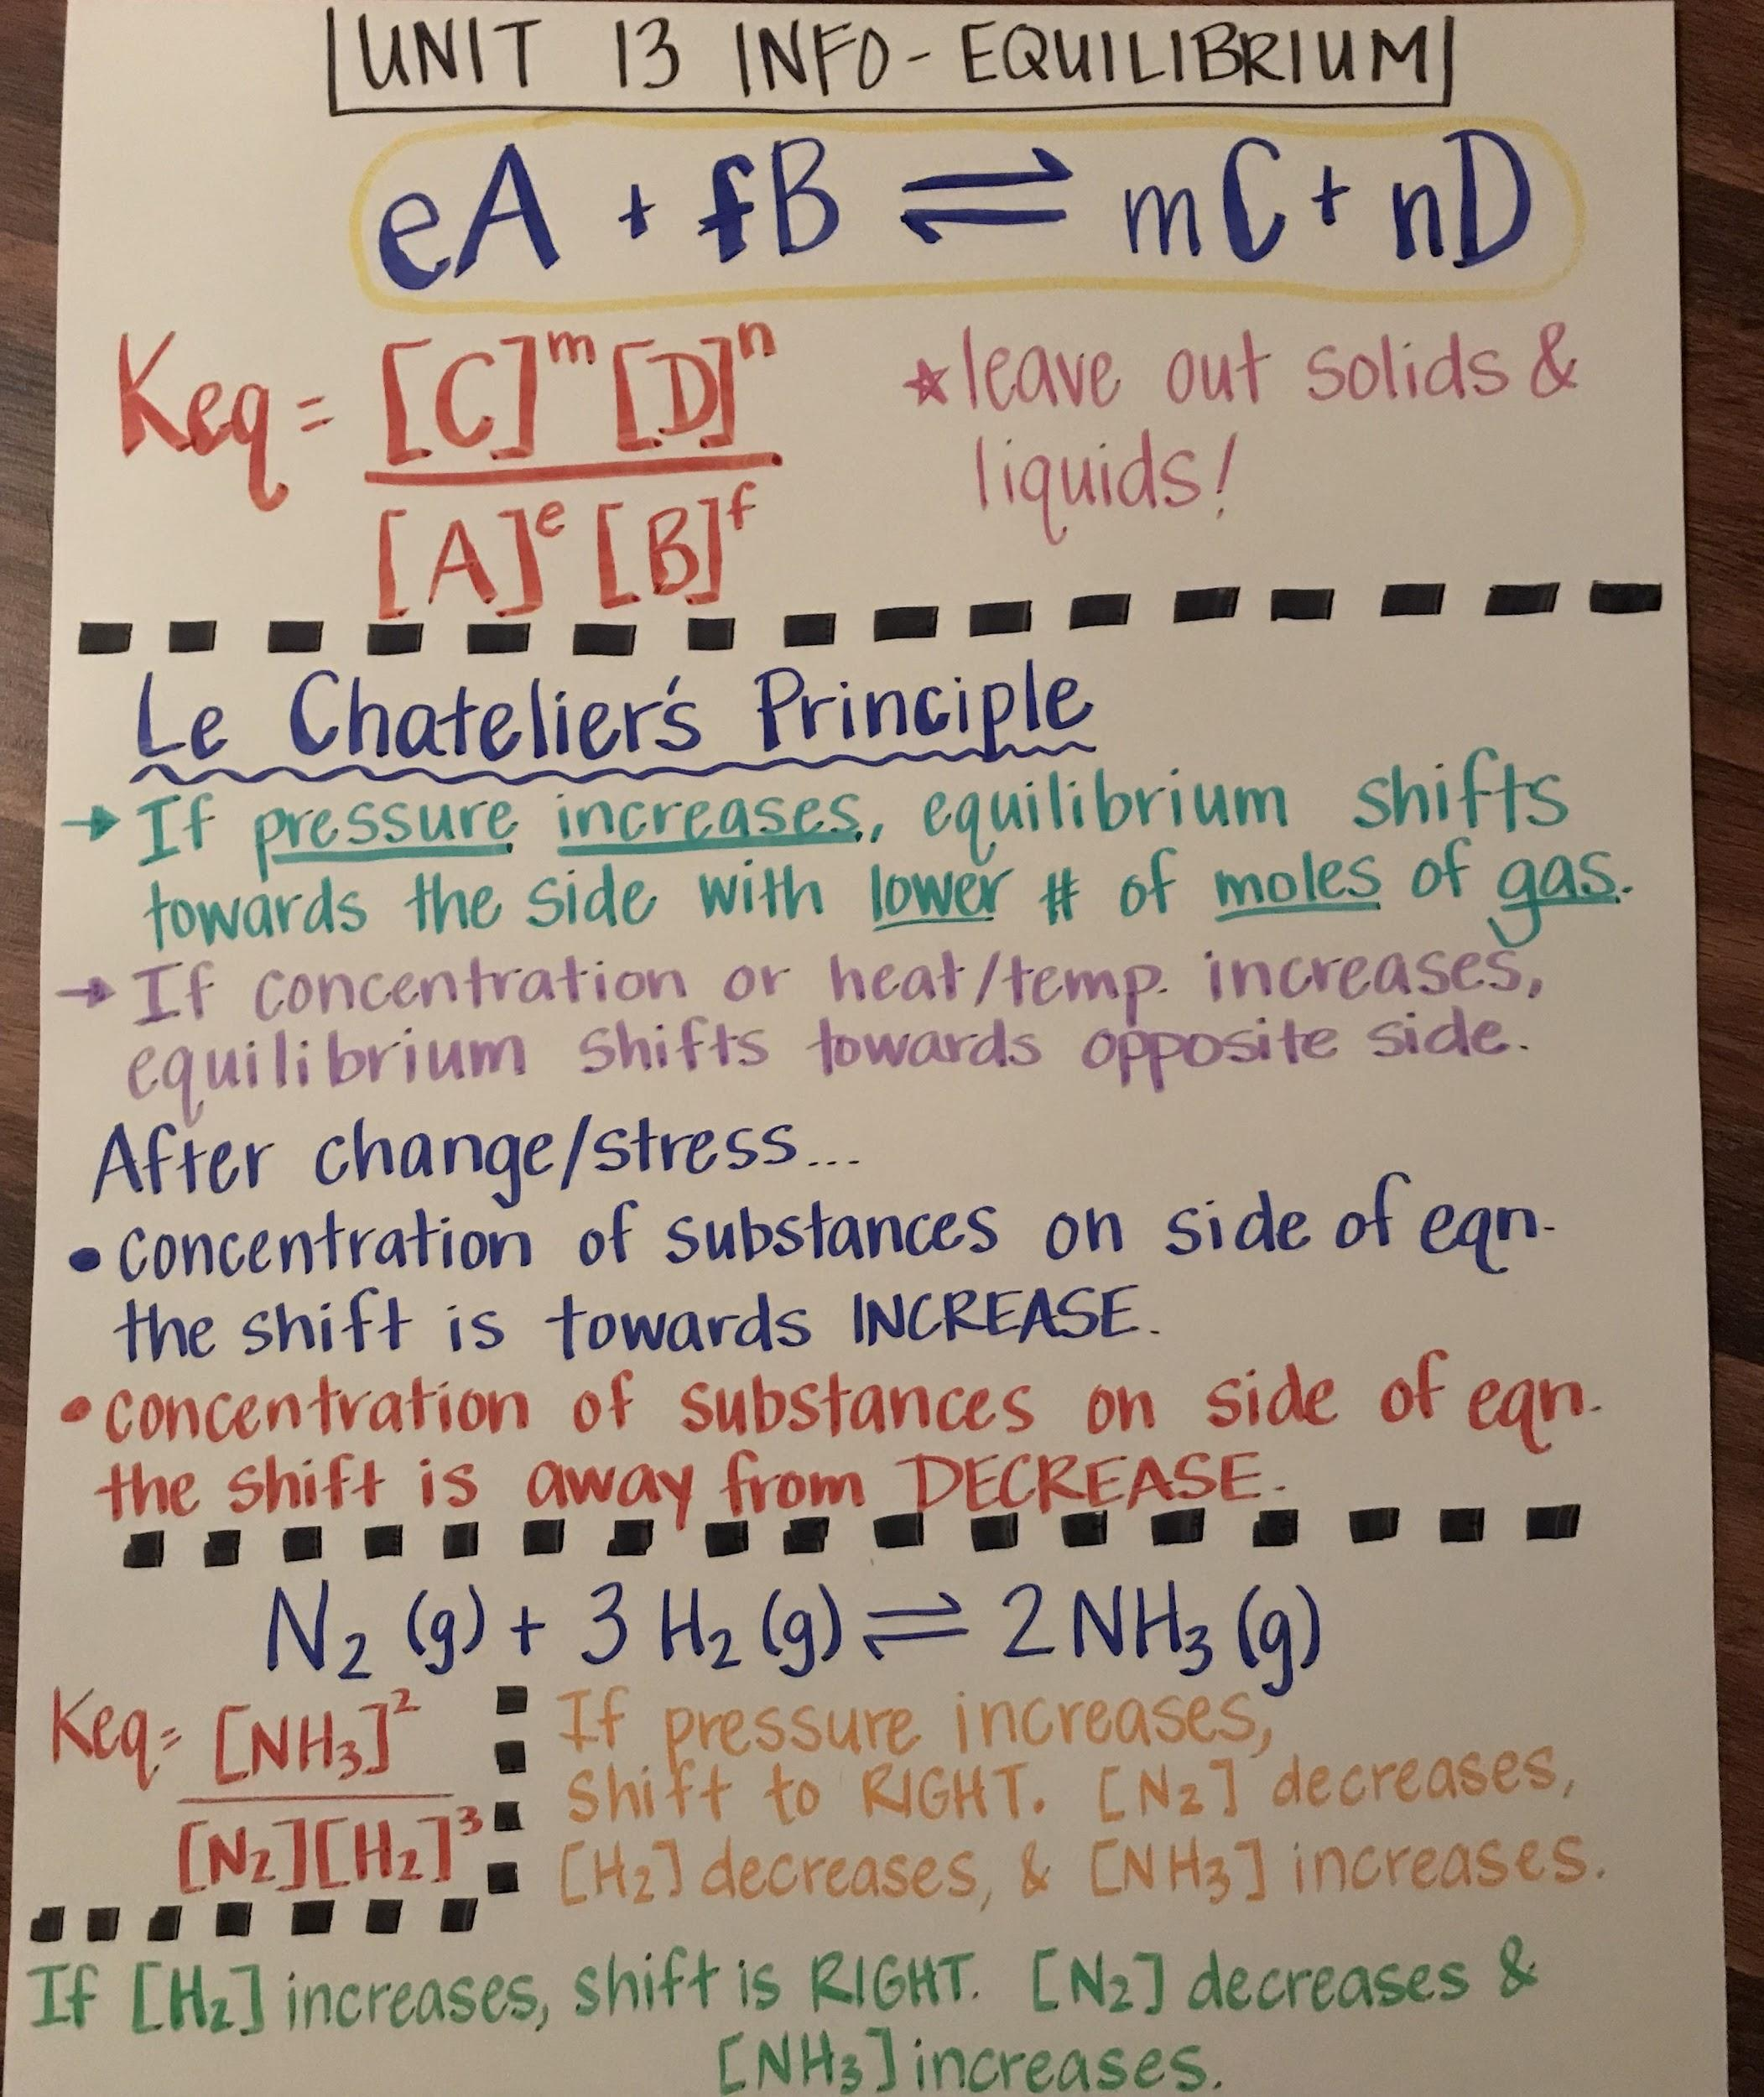 UNIT 13 INFO - EQUILIBRIUM
eA + fB ⇌ mC + nD
Keq = [C]^m [D]^n / [A]^e [B]^f
☆ leave out solids &
liquids!
Le Chatelier's Principle
→ If pressure increases, equilibrium shifts
towards the side with lower # of moles of gas.
→ If concentration or heat/temp. increases,
equilibrium shifts towards opposite side.
After change/stress...
• concentration of substances on side of eqn.
the shift is towards INCREASE.
• concentration of substances on side of eqn.
the shift is away from DECREASE.
N₂ (g) + 3 H₂ (g) ⇌ 2 NH₃ (g)
Keq = [NH₃]² / [N₂][H₂]³
If pressure increases,
shift to RIGHT. [N₂] decreases,
[H₂] decreases, & [NH₃] increases.
If [H₂] increases, shift is RIGHT. [N₂] decreases &
[NH₃] increases.